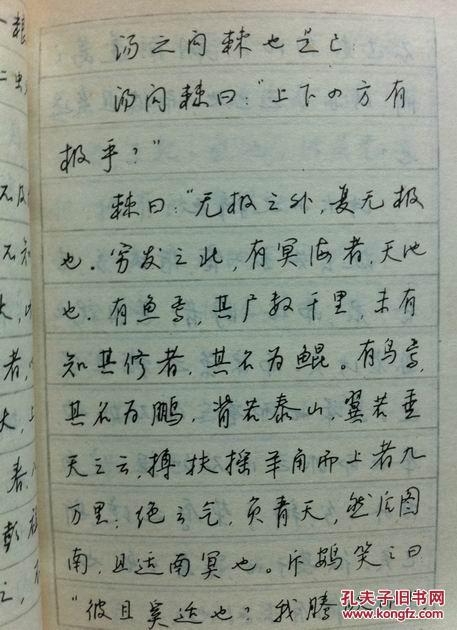 粮
二虫
不及
不知
者,
大,
者
彭
之,
汤之问棘也是已:
汤问棘曰:"上下四方有
极乎?"
棘曰:"无极之外,复无极
也。穷发之北,有冥海者,天池
也。有鱼焉,其广数千里,未有
知其修者,其名为鲲。有鸟焉,
其名为鹏,背若泰山,翼若垂
天之云,搏扶摇羊角而上者九
万里,绝云气,负青天,然后图
南,且适南冥也。斥鴳笑之曰
"彼且奚适也?我腾
孔夫子旧书网
WWW.KONGFZ.COM